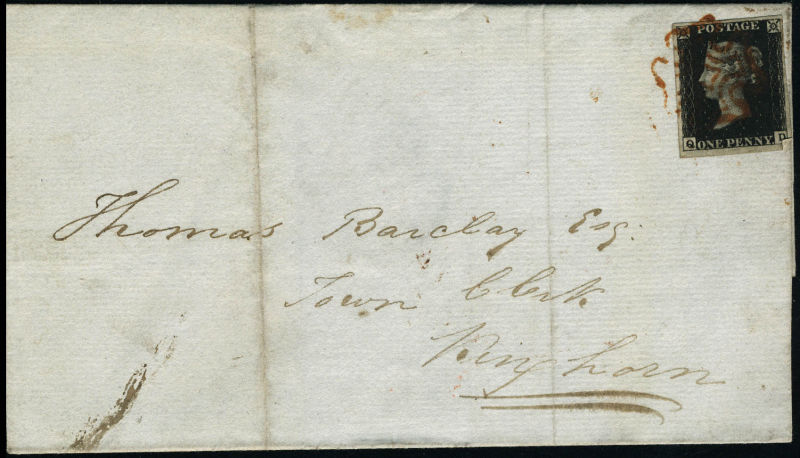 POSTAGE
Q ONE PENNY D
Thomas Barclay Esq.
Town Clerk
Kinghorn